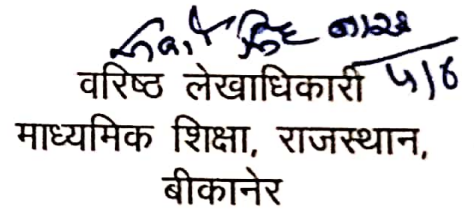 वरिष्ठ लेखाधिकारी 5/6
माध्यमिक शिक्षा, राजस्थान,
बीकानेर